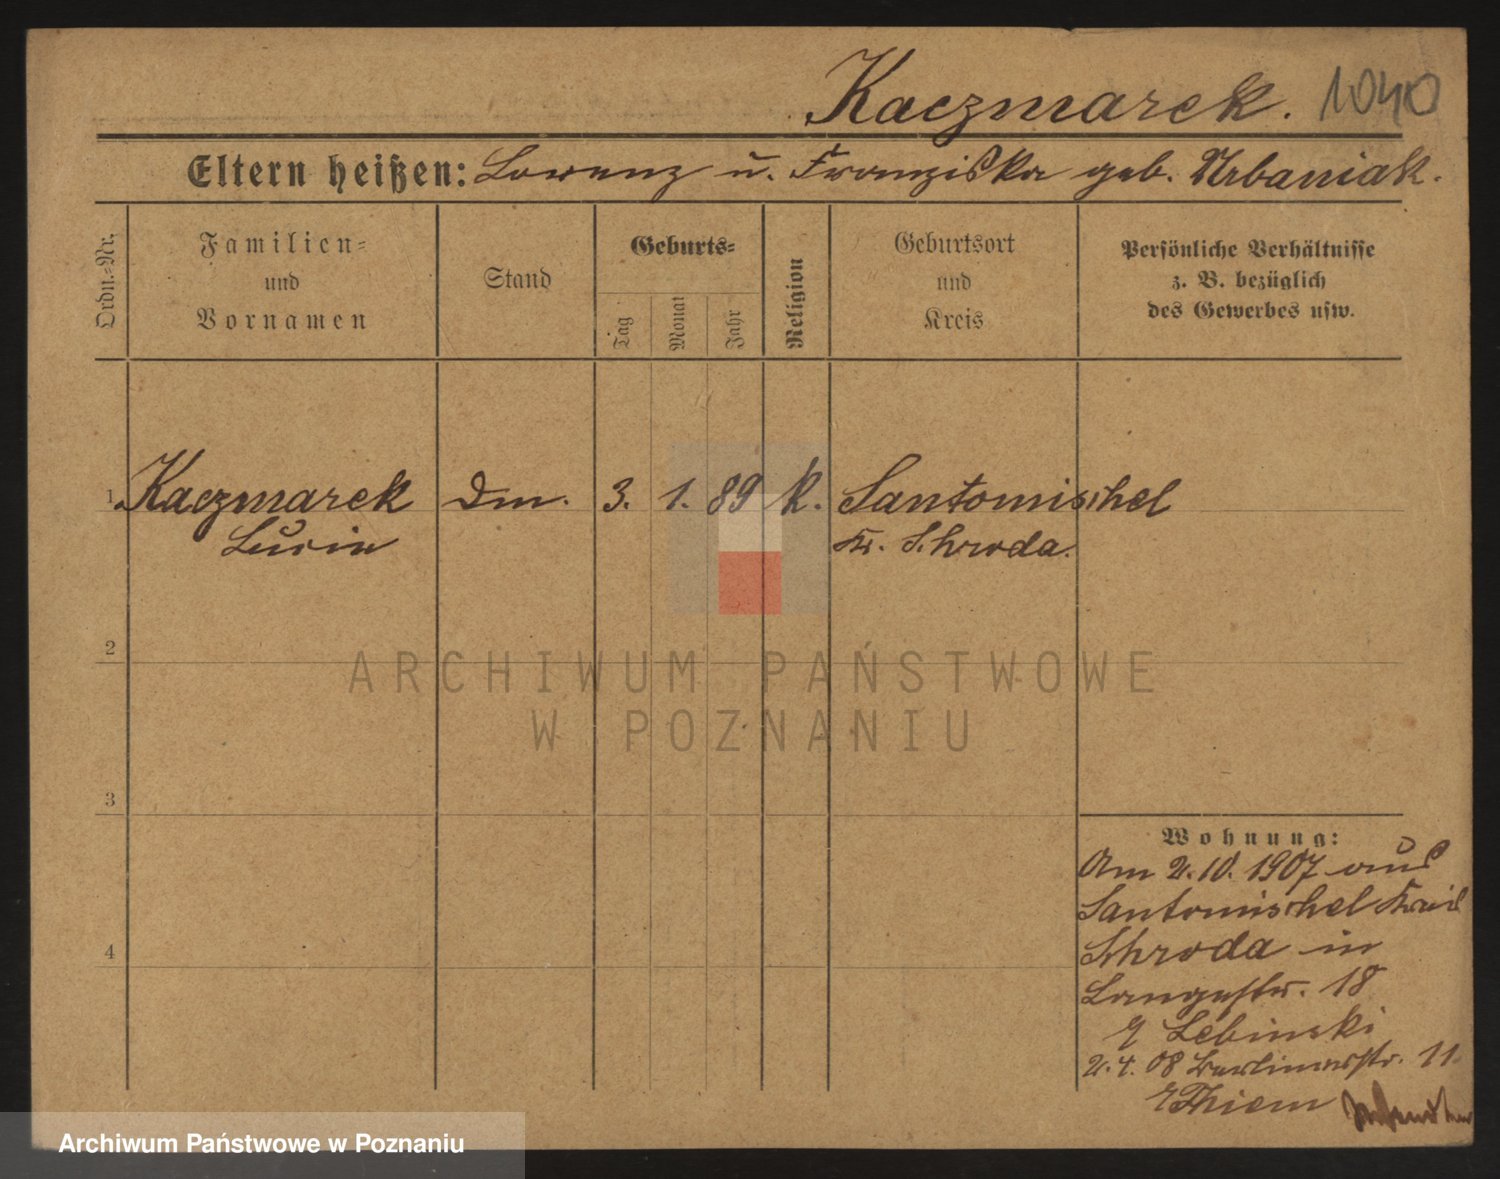 Kaczmarek. 1040
Eltern heißen: Lorenz u. Franziska geb. Urbaniak.
Ordn.=Nr.
Familien=
und
Vornamen
Stand
Geburts=
Tag
Monat
Jahr
Religion
Geburtsort
und
Kreis
Persönliche Verhältnisse
z. B. bezüglich
des Gewerbes usw.
1 Kaczmarek Dm. 3. 1. 89 k. Santomischel
Kr. Schroda.
2
ARCHIWUM PAŃSTWOWE
W POZNANIU
3
Wohnung:
Am 2.10. 1907 aus
Santomischel Kreis
4
Schroda in
Langestr. 18
Lebinski
2.4. 08 Berlinerstr. 11.
Thiem
Archiwum Państwowe w Poznaniu